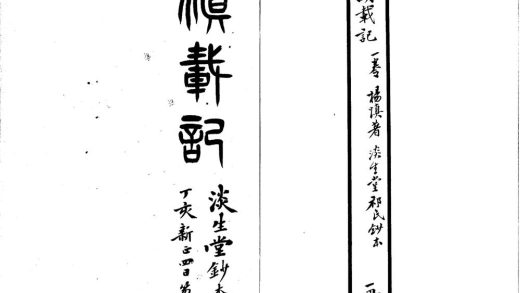 載記 一卷 楊慎著 淡生堂祁氏鈔本 一
滇載記
淡生堂鈔本
丁亥新正四日